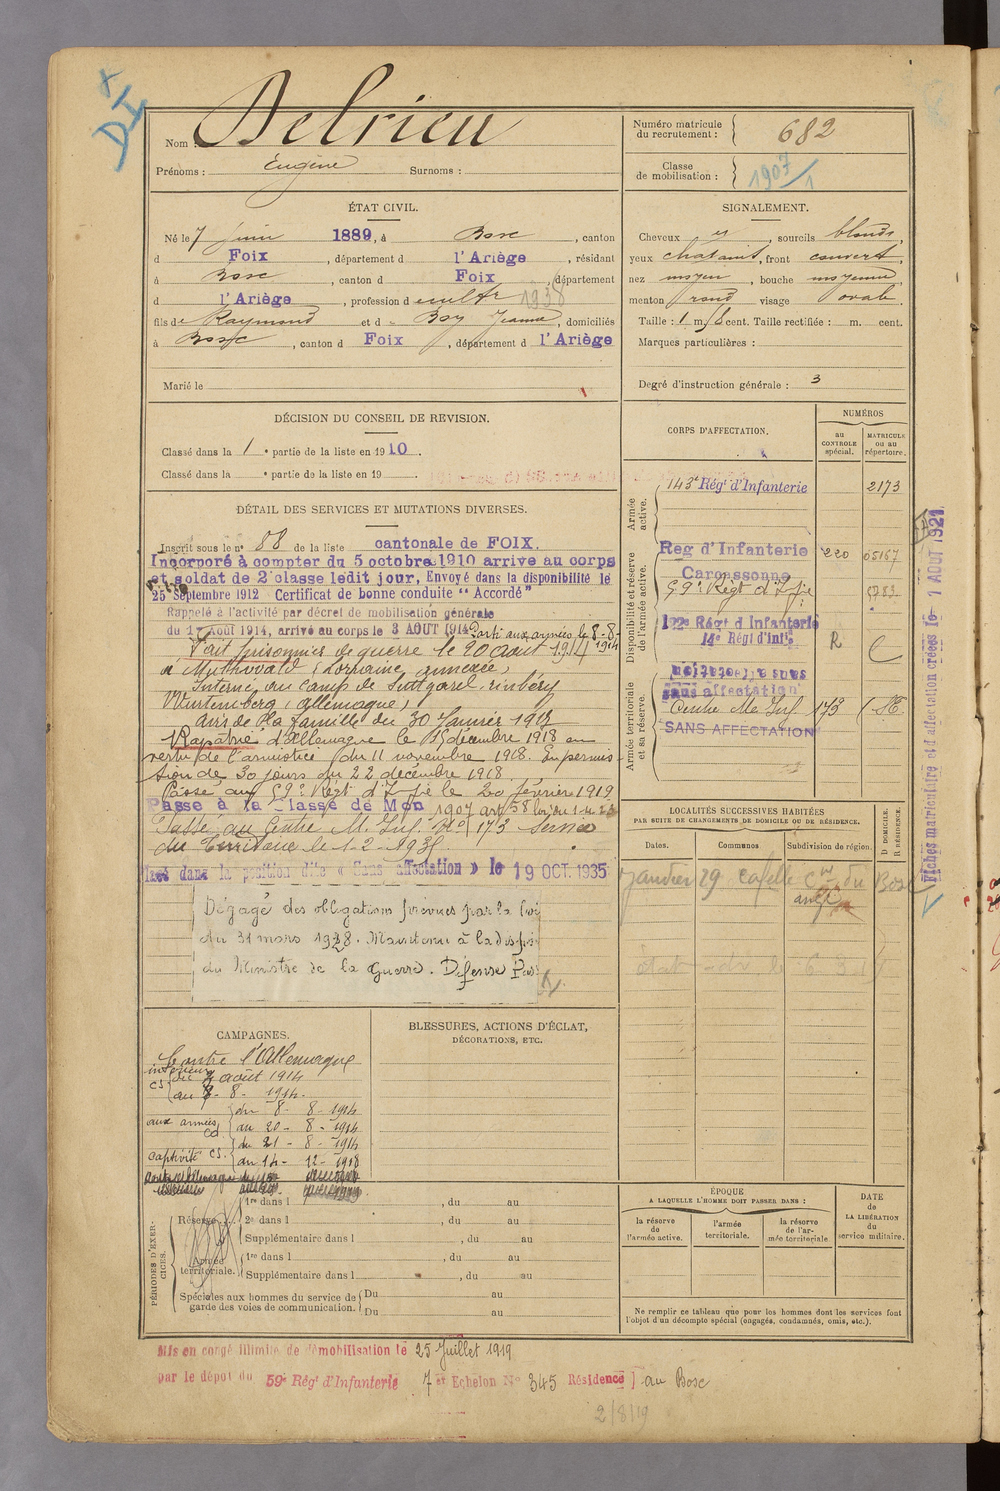 DI
Nom : Delrieu
Prénoms : Eugène Surnoms :
Numéro matricule du recrutement : 682
Classe de mobilisation : 1907/1
ÉTAT CIVIL.
Né le 7 juin 1889, à Bosc, canton
d Foix, département d l'Ariège, résidant
à Bosc, canton d Foix, département
d l'Ariège, profession d cultr 1938
fils de Raymond et d Boy Jeanne, domiciliés
à Bosc, canton d Foix, département d l'Ariège
Marié le
SIGNALEMENT.
Cheveux et, sourcils blonds,
yeux chatains, front couvert,
nez moyen, bouche moyenne,
menton rond visage ovale.
Taille : 1 m. cent. Taille rectifiée : m. cent.
Marques particulières :
Degré d'instruction générale : 3
DÉCISION DU CONSEIL DE REVISION.
Classé dans la 1e partie de la liste en 1910.
Classé dans la e partie de la liste en 19
DÉTAIL DES SERVICES ET MUTATIONS DIVERSES.
Inscrit sous le n° 88 de la liste cantonale de FOIX.
Incorporé à compter du 5 octobre 1910 arrivé au corps
et soldat de 2e classe ledit jour, Envoyé dans la disponibilité le
25 Septembre 1912 Certificat de bonne conduite "Accordé"
Rappelé à l'activité par décret de mobilisation générale
du 1er Août 1914, arrivé au corps le 3 AOUT 1914 Parti aux armées le 8-8-1914
Fait prisonnier de guerre le 20 août 1914
à (Lorraine annexée)
Interné au camp de
Wurtemberg (Allemagne)
avis de la famille du 30 Janvier
Rapatrié d'Allemagne le 15 décembre 1918 en
vertu de l'armistice du 11 novembre 1918. En permis
sion de 30 jours du 22 décembre 1918.
Passé au 59e Régt d'Ifie le 20 février 1919
Passé à la Classe de Mon 1907 art 58 loi du
Passé au Centre M. Inf. No 173 Service
du Territoire le 1-2-
Placé dans la position dite « Sans affectation » le 19 OCT. 1935
Dégagé des obligations prévues par la loi
du 31 mars 1928. Maintenu à la dispo
du Ministre de la Guerre. Défense Pas
CORPS D'AFFECTATION.
NUMÉROS
AU CONTROLE spécial.
MATRICULE ou au répertoire.
Armée active.
143e Régt d'Infanterie 2173
Disponibilité et réserve de l'armée active.
Reg d'Infanterie 220 05167
Carcassonne
59e Régt d'Ifie
122e Régt d Infanterie
14e Régt d'Infie R
Armée territoriale et sa réserve.
sans affectation
Centre Me Inf 173
SANS AFFECTATION
Fiches matriculaire et d'affectation créées le 1 AOUT 1921
LOCALITÉS SUCCESSIVES HABITÉES
PAR SUITE DE CHANGEMENTS DE DOMICILE OU DE RÉSIDENCE.
Dates. Communes Subdivision de région.
D DOMICILE.
R RÉSIDENCE.
Janvier 29 du Bosc
CAMPAGNES.
Contre l'Allemagne
intérieur CS du août 1914
au - 8 - 1914.
aux armées CD du 8 - 8 - 1914
au 20 - 8 - 1914
captivité CS. du 21 - 8 - 1914
au 14 - 12 - 1918
BLESSURES, ACTIONS D'ÉCLAT,
DÉCORATIONS, ETC.
PÉRIODES D'EXERCICES.
Réserve
1re dans l , du au
2e dans l , du au
Supplémentaire dans l , du au
Armée territoriale.
1re dans l , du au
Supplémentaire dans l , du au
Spéciales aux hommes du service de garde des voies de communication.
Du au
Du au
ÉPOQUE
A LAQUELLE L'HOMME DOIT PASSER DANS :
la réserve de l'armée active.
l'armée territoriale.
la réserve de l'armée territoriale
DATE DE LA LIBÉRATION du service militaire.
Ne remplir ce tableau que pour les hommes dont les services font
l'objet d'un décompte spécial (engagés, condamnés, omis, etc.).
Mis en congé illimité de démobilisation le 25 Juillet 1919
par le dépôt du 59e Régt d'Infanterie 7e Echelon No 345 Résidence au Bosc
2/8/19